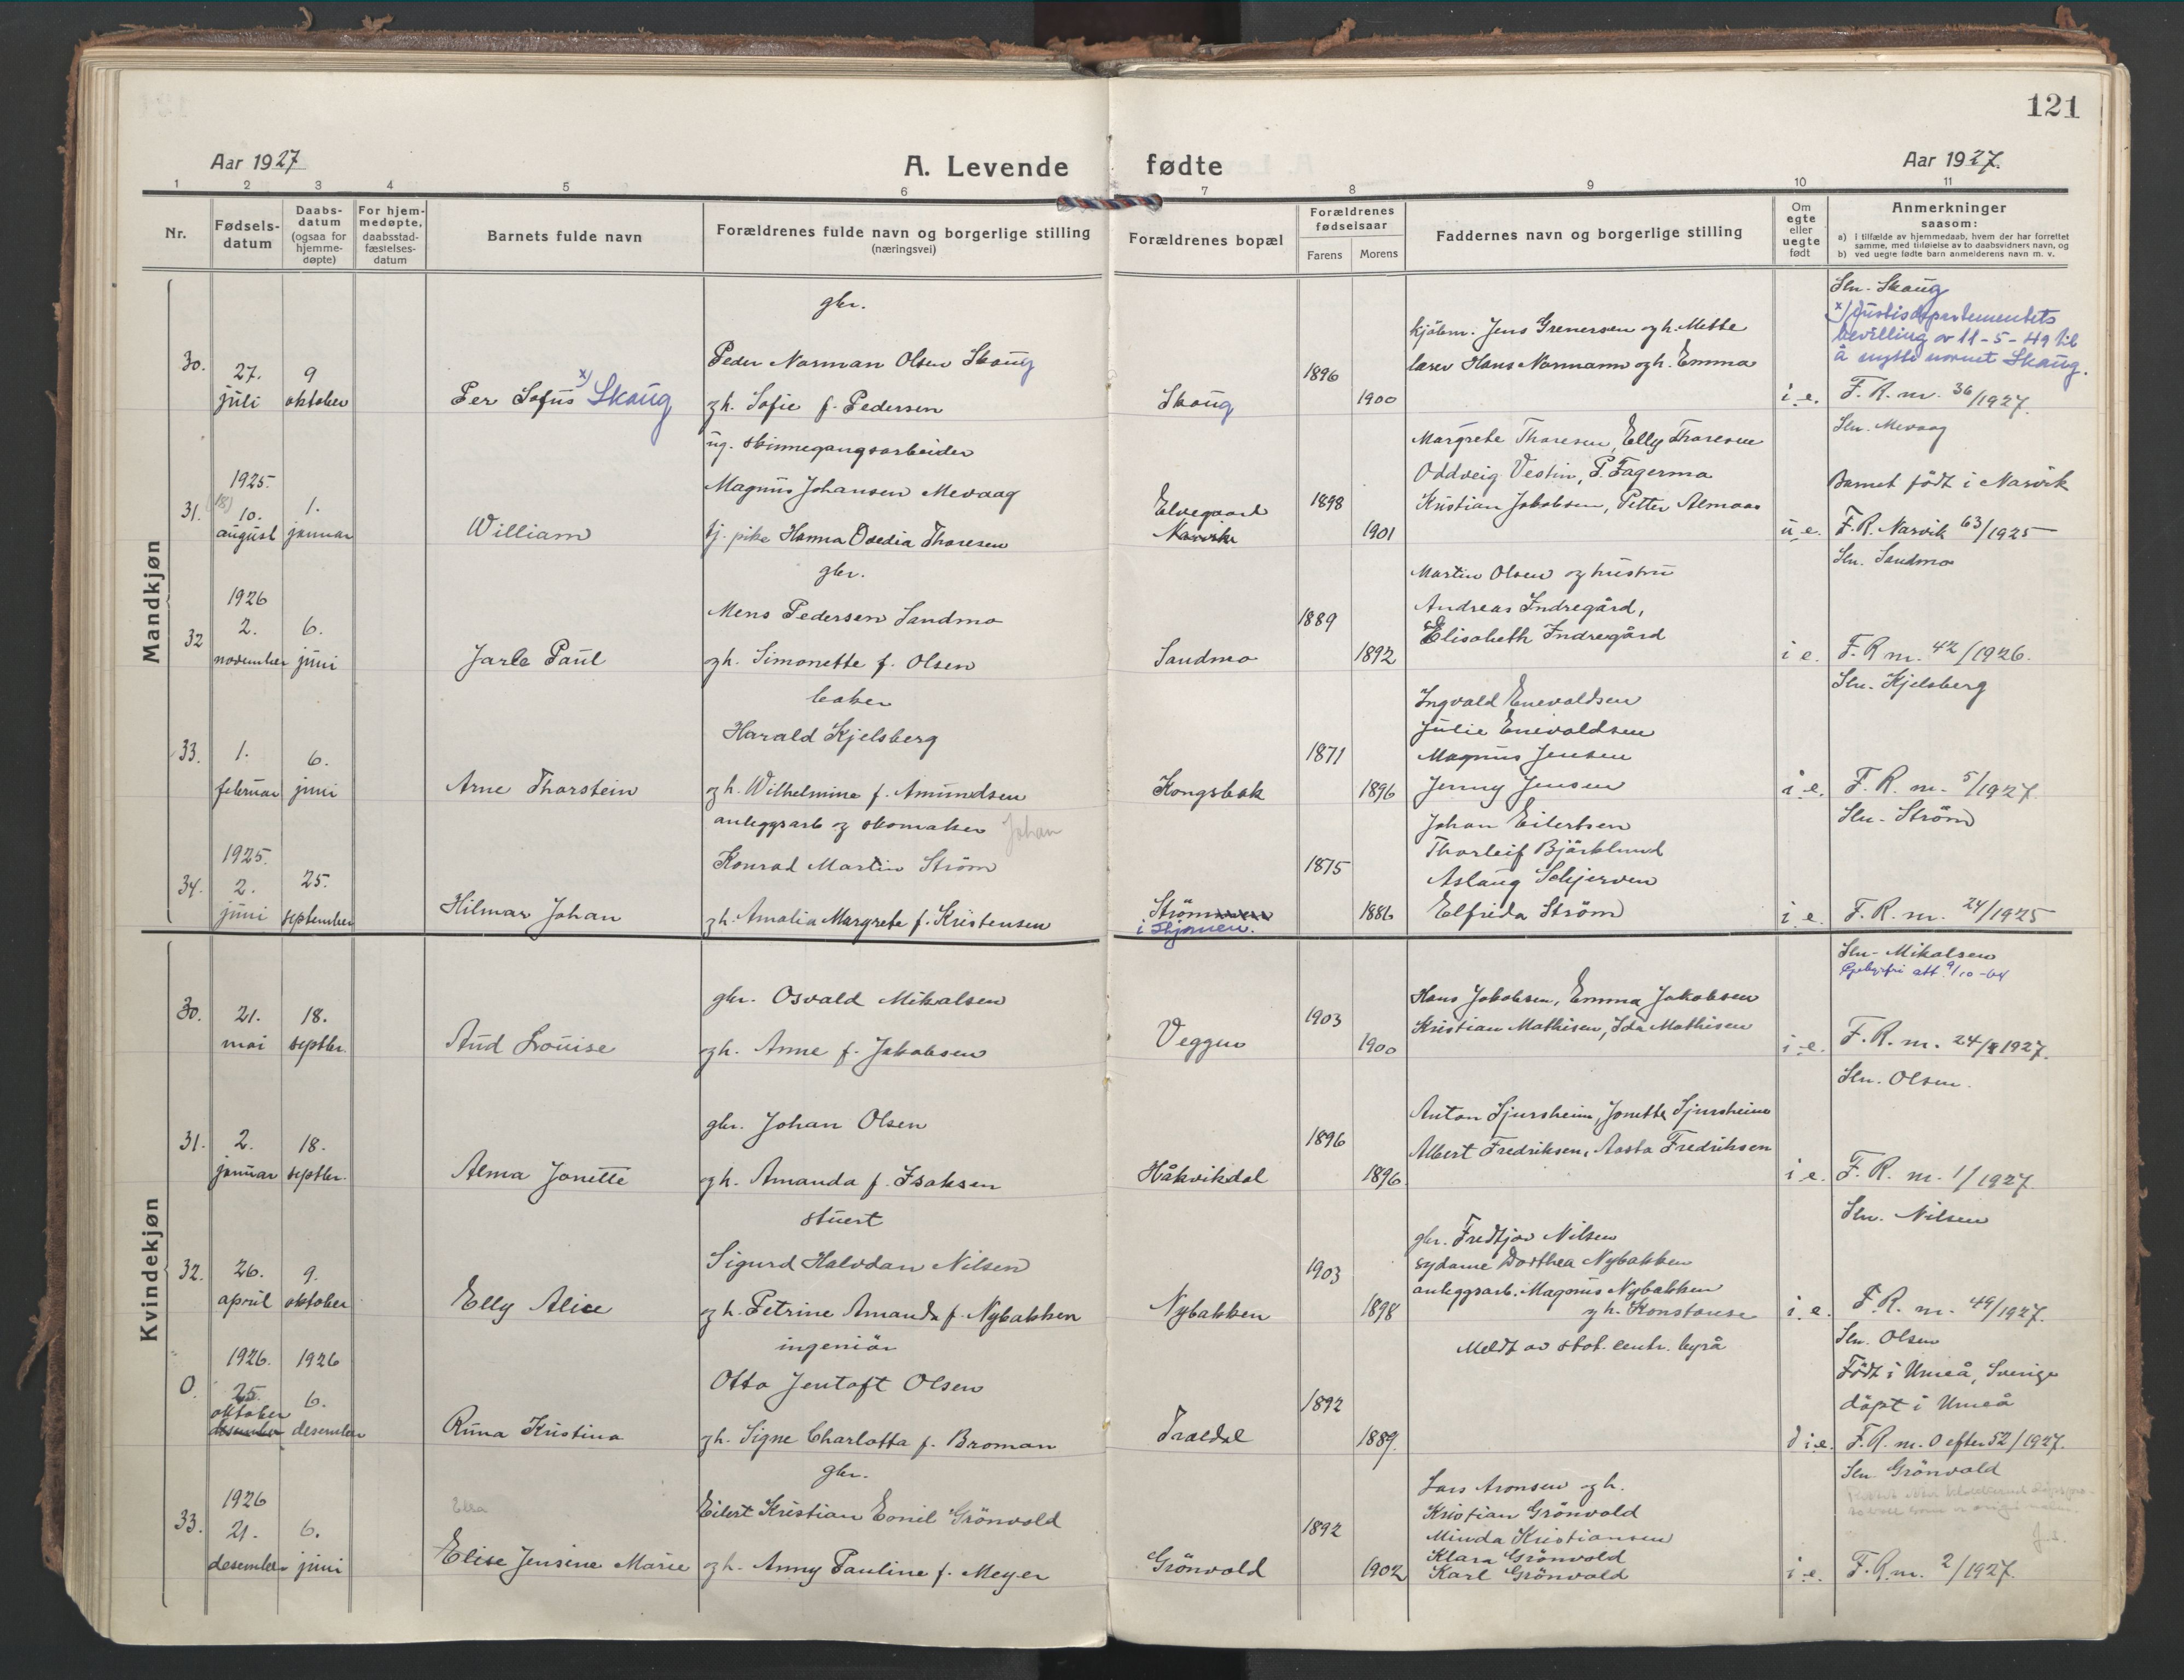 121
Aar 1927
A. Levende fødte
Aar 1927.
1 2 3 4 5 6 7 8 9 10 11
Nr.
Fødselsdatum
Daabsdatum (ogsaa for hjemmedøpte)
For hjemmedøpte, daabsstadfæstelsesdatum
Barnets fulde navn
Forældrenes fulde navn og borgerlige stilling (næringsvei)
Forældrenes bopæl
Forældrenes fødselsaar
Farens Morens
Faddernes navn og borgerlige stilling
Om egte eller uegte født
Anmerkninger saasom:
a) i tilfælde av hjemmedaab, hvem der har forrettet samme, med tilføielse av to daabsvidners navn, og
b) ved uegte fødte barn anmelderens navn m. v.
Mandkjøn
30. 27. juli 9 oktober
Per Sofus x) Skaug
gbr.
Peder Norman Olsen Skaug
og h. Sofie f. Pedersen
Skaug
1896
1900
kjøbm. Jens Grenersen og h. Mette
lærer Hans Normann og h. Emma
i. e.
Sln. Skaug
x) Justisdepartementets
bevilling av 11-5-49 til
å nytte navnet Skaug.
F. R. nr. 36/1927.
31. 1925. (18) 10. august 1. januar
William
ug. skinnegangsarbeider
Magnus Johansen Mevaag
tj. pike Hanna Ovedia Thoresen
Elvegaard
Narvik
1898
1901
Margrete Thoresen, Elly Thoresen
Oddveig Vestin, P. Fagermo
Kristian Jakobsen, Petter Almaas
u. e.
Sln. Mevaag
Barnet födt i Narvik
F. R. Narvik 63/1925
32 1926 2. november 6. juni
Jarle Paul
gbr.
Mens Pedersen Sandmo
og h. Simonette f. Olsen
Sandmo
1889
1892
Martin Olsen og hustru
Andreas Indregård,
Elisabeth Indregård
i e.
Sln. Sandmo
F. R nr. 42/1926.
33. 1. februar 6. juni
Arne Thorstein
baker
Harald Kjelsberg
og h. Wilhelmine f. Amundsen
Kongsbak
1871
1896
Ingvald Enevoldsen
Julie Enevoldsen
Magnus Jensen
Jenny Jensen
i. e.
Sln. Kjelsberg
F. R. nr. 5/1927.
34. 1925. 2. juni 25. september
Hilmar Johan
anleggsarb og skomaker Johan
Konrad Martin Ström
og h. Amalia Margrete f. Kristensen
Ström
i Skjomen.
1875
1886
Johan Eilertsen
Thorleif Bjärklund
Aslaug Schjerven
Elfrida Ström
i e.
Sln. Ström
F. R. nr. 24/1925
Kvindekjøn
30. 21. mai 18. septbr.
Aud Louise
gbr. Osvald Mikalsen
og h. Anne f. Jakobsen
Veggen
1903
1900
Hans Jakobsen, Emma Jakobsen
Kristian Mathisen, Ida Mathisen
i. e.
Sln. Mikalsen
att. 9/10-64
F. R. nr. 24/1927.
31. 2. januar 18. septbr.
Alma Jonette
gbr. Johan Olsen
og h. Amanda f. Isaksen
Håkvikdal
1896
1896
Anton Sjursheim, Jonette Sjursheim
Albert Fredriksen, Aasta Fredriksen
i e.
Sln. Olsen.
F. R. nr. 1/1927.
32. 26. april 9. oktober
Elly Alice
stuert
Sigurd Halvdan Nilsen
og h. Petrine Amanda f. Nybakken
Nybakken
1903
1898
gbr. Fredtjov Nilsen
sydame Dorthea Nybakken
anleggsarb. Magnus Nybakken
og h. Konstanse
i. e.
Sln. Nilsen
F. R. nr. 49/1927.
0. 1926. 25. oktober desember 1926 6. desember
Runa Kristina
ingeniör
Otto Jentoft Olsen
og h. Signe Charlotta f. Broman
Traldal
1892
1889.
Meldt av stat. centr. byrå
d i. e.
Sln. Olsen
Födt i Umeå, Sverige
döpt i Umeå
F. R. nr. 0 efter 52/1927.
33. 1926 21. desember 6. juni
Elsa
Elise Jensine Marie
gbr.
Eilert Kristian Emil Grönvold
og h. Anny Pauline f. Meyer
Grönvold
1892
1902
Lars Aronsen og h.
Kristian Grönvold
Minda Kristiansen
Klara Grönvold
Karl Grönvold
i. e.
Sln. Grönvold
F. R. nr. 2/1927.